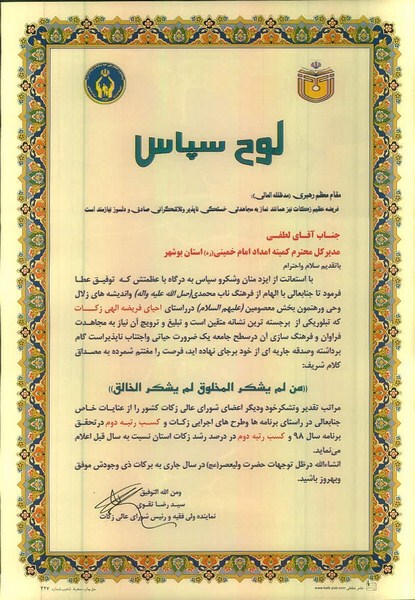 لوح سپاس
مقام معظم رهبری (مدظله العالی):
فریضه عظیم زکات نیز همانند نماز به مجاهدتی خستگی ناپذیر وتلاشگرانی صادق و دلسوز نیازمند است
جناب آقای لطفی
مدیرکل محترم کمیته امداد امام خمینی(ره) استان بوشهر
باتقدیم سلام واحترام
با استعانت از ایزد منان وشکرو سپاس به درگاه با عظمتش که توفیق عطا
فرمود تا جنابعالی با الهام از فرهنگ ناب محمدی(صل الله علیه واله) واندیشه های زلال
وحی ورهنمون بخش معصومین (علیهم السلام) درراستای احیای فریضه الهی زکات
که تبلوریکی از برجسته ترین نشانه متقین است و تبلیغ و ترویج آن نیاز به مجاهدت
فراوان و فرهنگ سازی آن درسطح جامعه یک ضرورت حیاتی واجتناب ناپذیراست گام
برداشته وصدقه جاریه ای از خود برجای نهاده اید، فرصت را مغتنم شمرده به مصداق
کلام شریف
((من لم یشکر المخلوق لم یشکر الخالق))
مراتب تقدیر وتشکرخود ودیگر اعضای شورای عالی زکات کشور را از عنایات خاص
جنابعالی در راستای برنامه ها وطرح های اجرایی زکات و کسب رتبه دوم درتحقق
برنامه سال ۹۸ و کسب رتبه دوم در درصد رشد زکات استان نسبت به سال قبل اعلام
می‌نماید.
انشاءالله درظل توجهات حضرت ولیعصر(عج) در سال جاری به برکات ذی وجودش موفق
وبهروز باشید.
ومن الله التوفیق
سید رضا تقوی
نماینده ولی فقیه و رئیس شورای عالی زکات